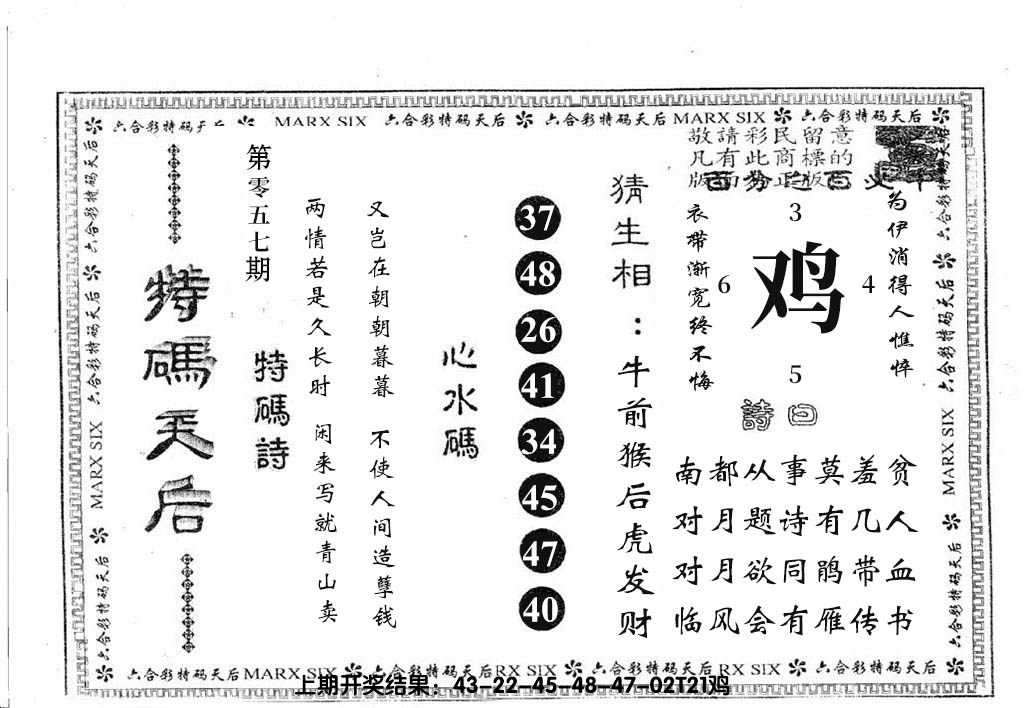 六合彩特码天后 MARX SIX 六合彩特码天后 六合彩特码天后 MARX SIX 六合彩特码天后
敬請彩民留意
凡有此商標的
特碼天后
第零五七期
特碼詩
两情若是久长时 闲来写就青山卖
又岂在朝朝暮暮 不使人间造孽钱
心水碼
37
48
26
41
34
45
47
40
猜生相：牛前猴后虎发财
衣带渐宽终不悔
为伊消得人憔悴
3
6
鸡
4
5
詩曰
南都从事莫羞贫
对月题诗有几人
对月欲同鹃带血
临风会有雁传书
六合彩特码天后 MARX SIX 六合彩特码天后
六合彩特码天后 MARX SIX 六合彩特码天后
六合彩特码天后 MARX SIX 六合彩特码天后 RX SIX 六合彩特码天后 RX SIX 六合彩特码天后
上期开奖结果：43-22-45-48-47-02T21鸡